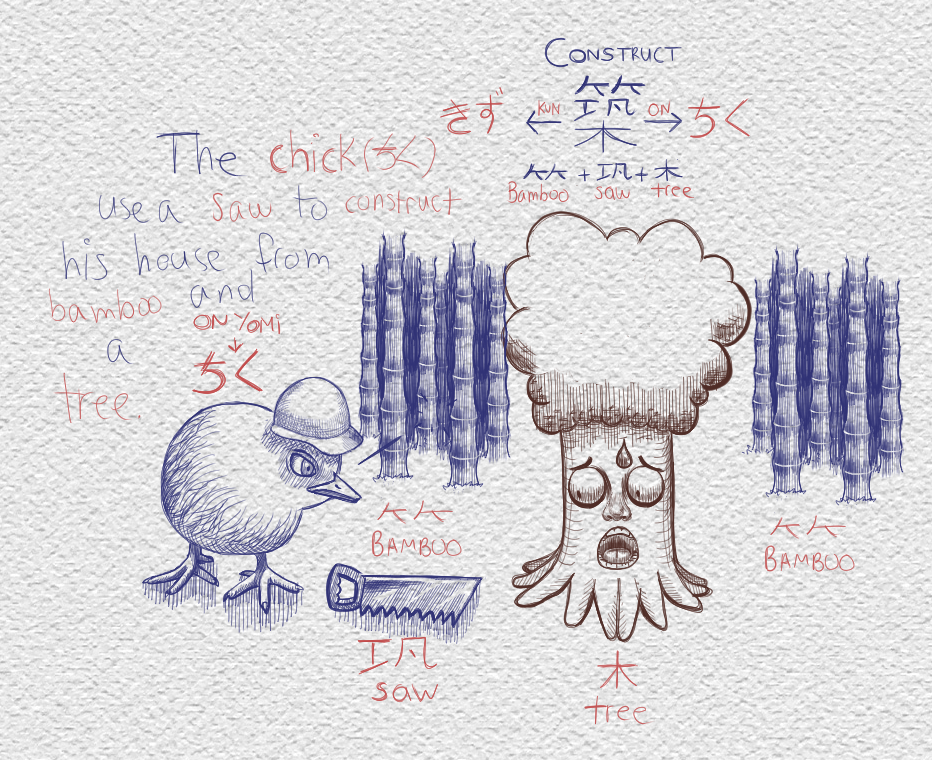 CONSTRUCT
きず ← KUN 築 ON → ちく
𥫗 + 巩 + 木
Bamboo saw tree
The chick (ちく)
use a saw to construct
his house from
bamboo and
a
tree.
ON YOMI
↓
ちく
𥫗
BAMBOO
𥫗
BAMBOO
巩
saw
木
tree